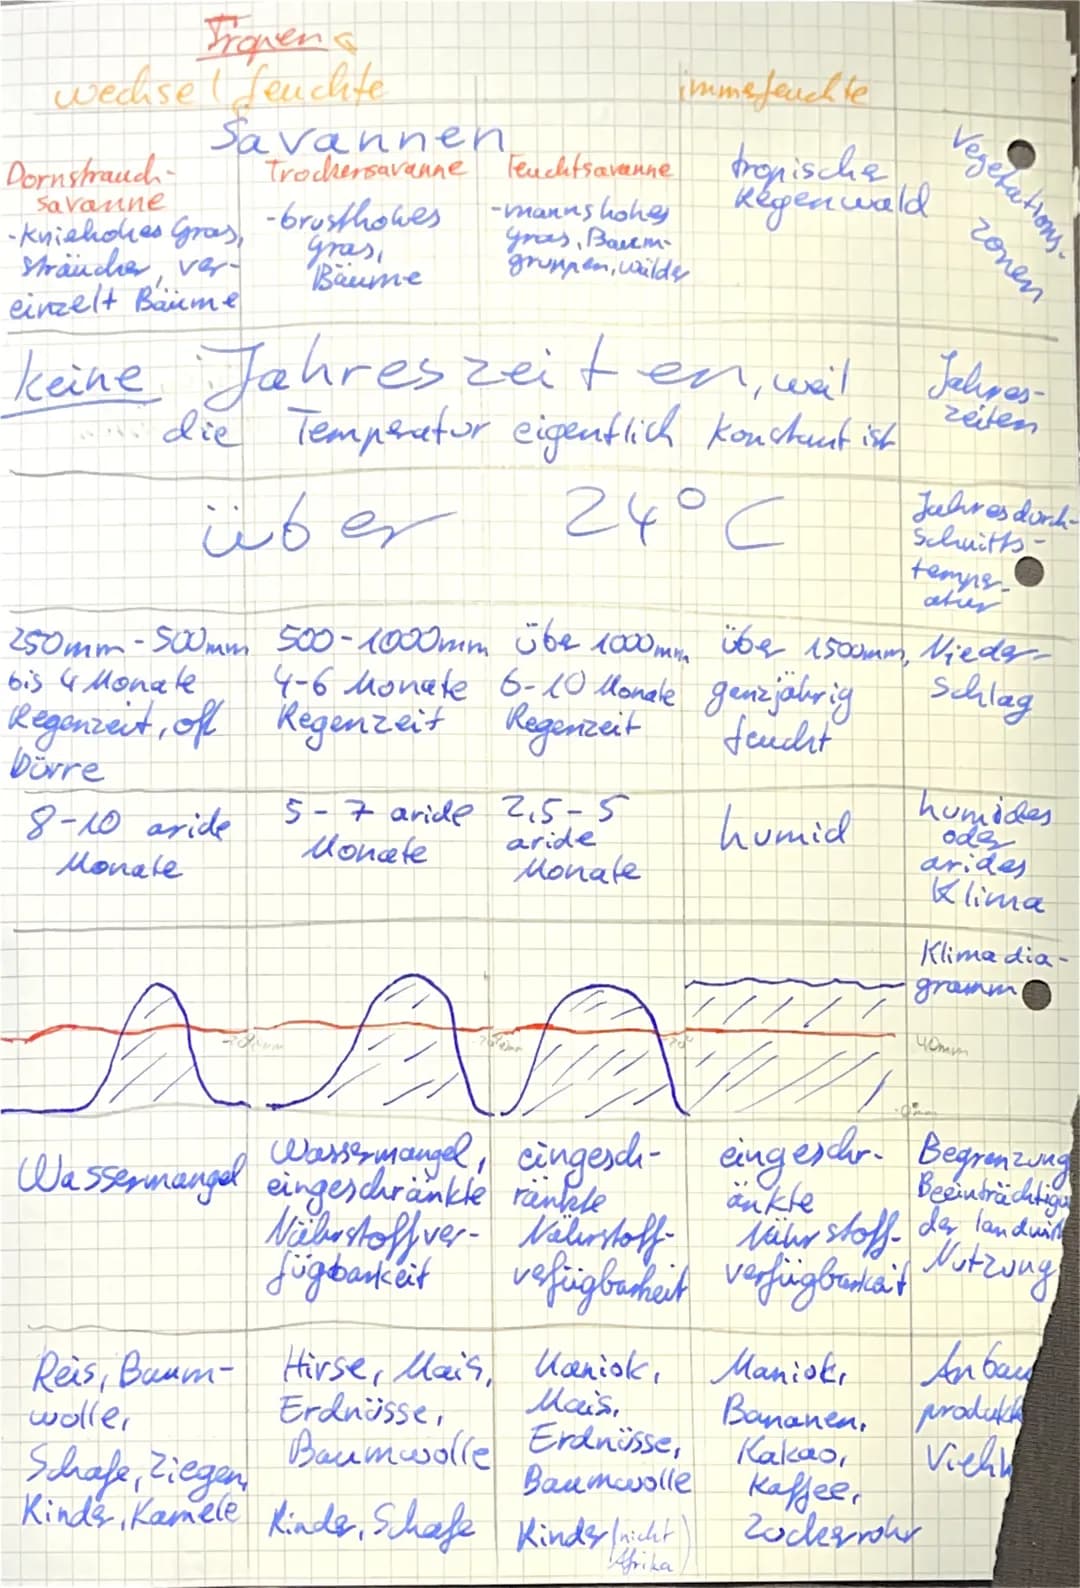 Tropen
wechselfeuchte immerfeuchte
Savannen
Dornstrauch-
savanne
-kniehohes Gras,
Sträucher, ver-
einzelt Bäume
Trockensavanne
-brusthohes
Gras,
Bäume
Feuchtsavanne
-mannshohes
Gras, Baum-
gruppen, Wälder
tropischer
Regenwald
Vegetations-
zonen
keine Jahreszeiten, weil
die Temperatur eigentlich konstant ist
Jahres-
zeiten
über 24°C
Jahresdurch-
schnitts-
temper-
atur
250mm-500mm
bis 4 Monate
Regenzeit, oft
Dürre
500-1000mm
4-6 Monate
Regenzeit
über 1000mm
6-10 Monate
Regenzeit
über 1500mm,
ganzjährig
feucht
Nieder-
schlag
8-10 aride
Monate
5-7 aride
Monate
2,5-5
aride
Monate
humid
humides
oder
arides
Klima
Klimadia-
gramm
40mm
Wassermangel
Wassermangel,
eingeschränkte
Nährstoffver-
fügbarkeit
eingesch-
ränkte
Nährstoff-
verfügbarkeit
eingeschr-
änkte
Nährstoff-
verfügbarkeit
Begrenzung
Beeinträchtigu
der landwirt
Nutzung
Reis, Baum-
wolle,
Schafe, Ziegen,
Rinder, Kamele
Hirse, Mais,
Erdnüsse,
Baumwolle
Rinder, Schafe
Maniok,
Mais,
Erdnüsse,
Baumwolle
Rinder (nicht
Afrika)
Maniok,
Bananen,
Kakao,
Kaffee,
Zuckerrohr
Anbau
produkt
Vieh